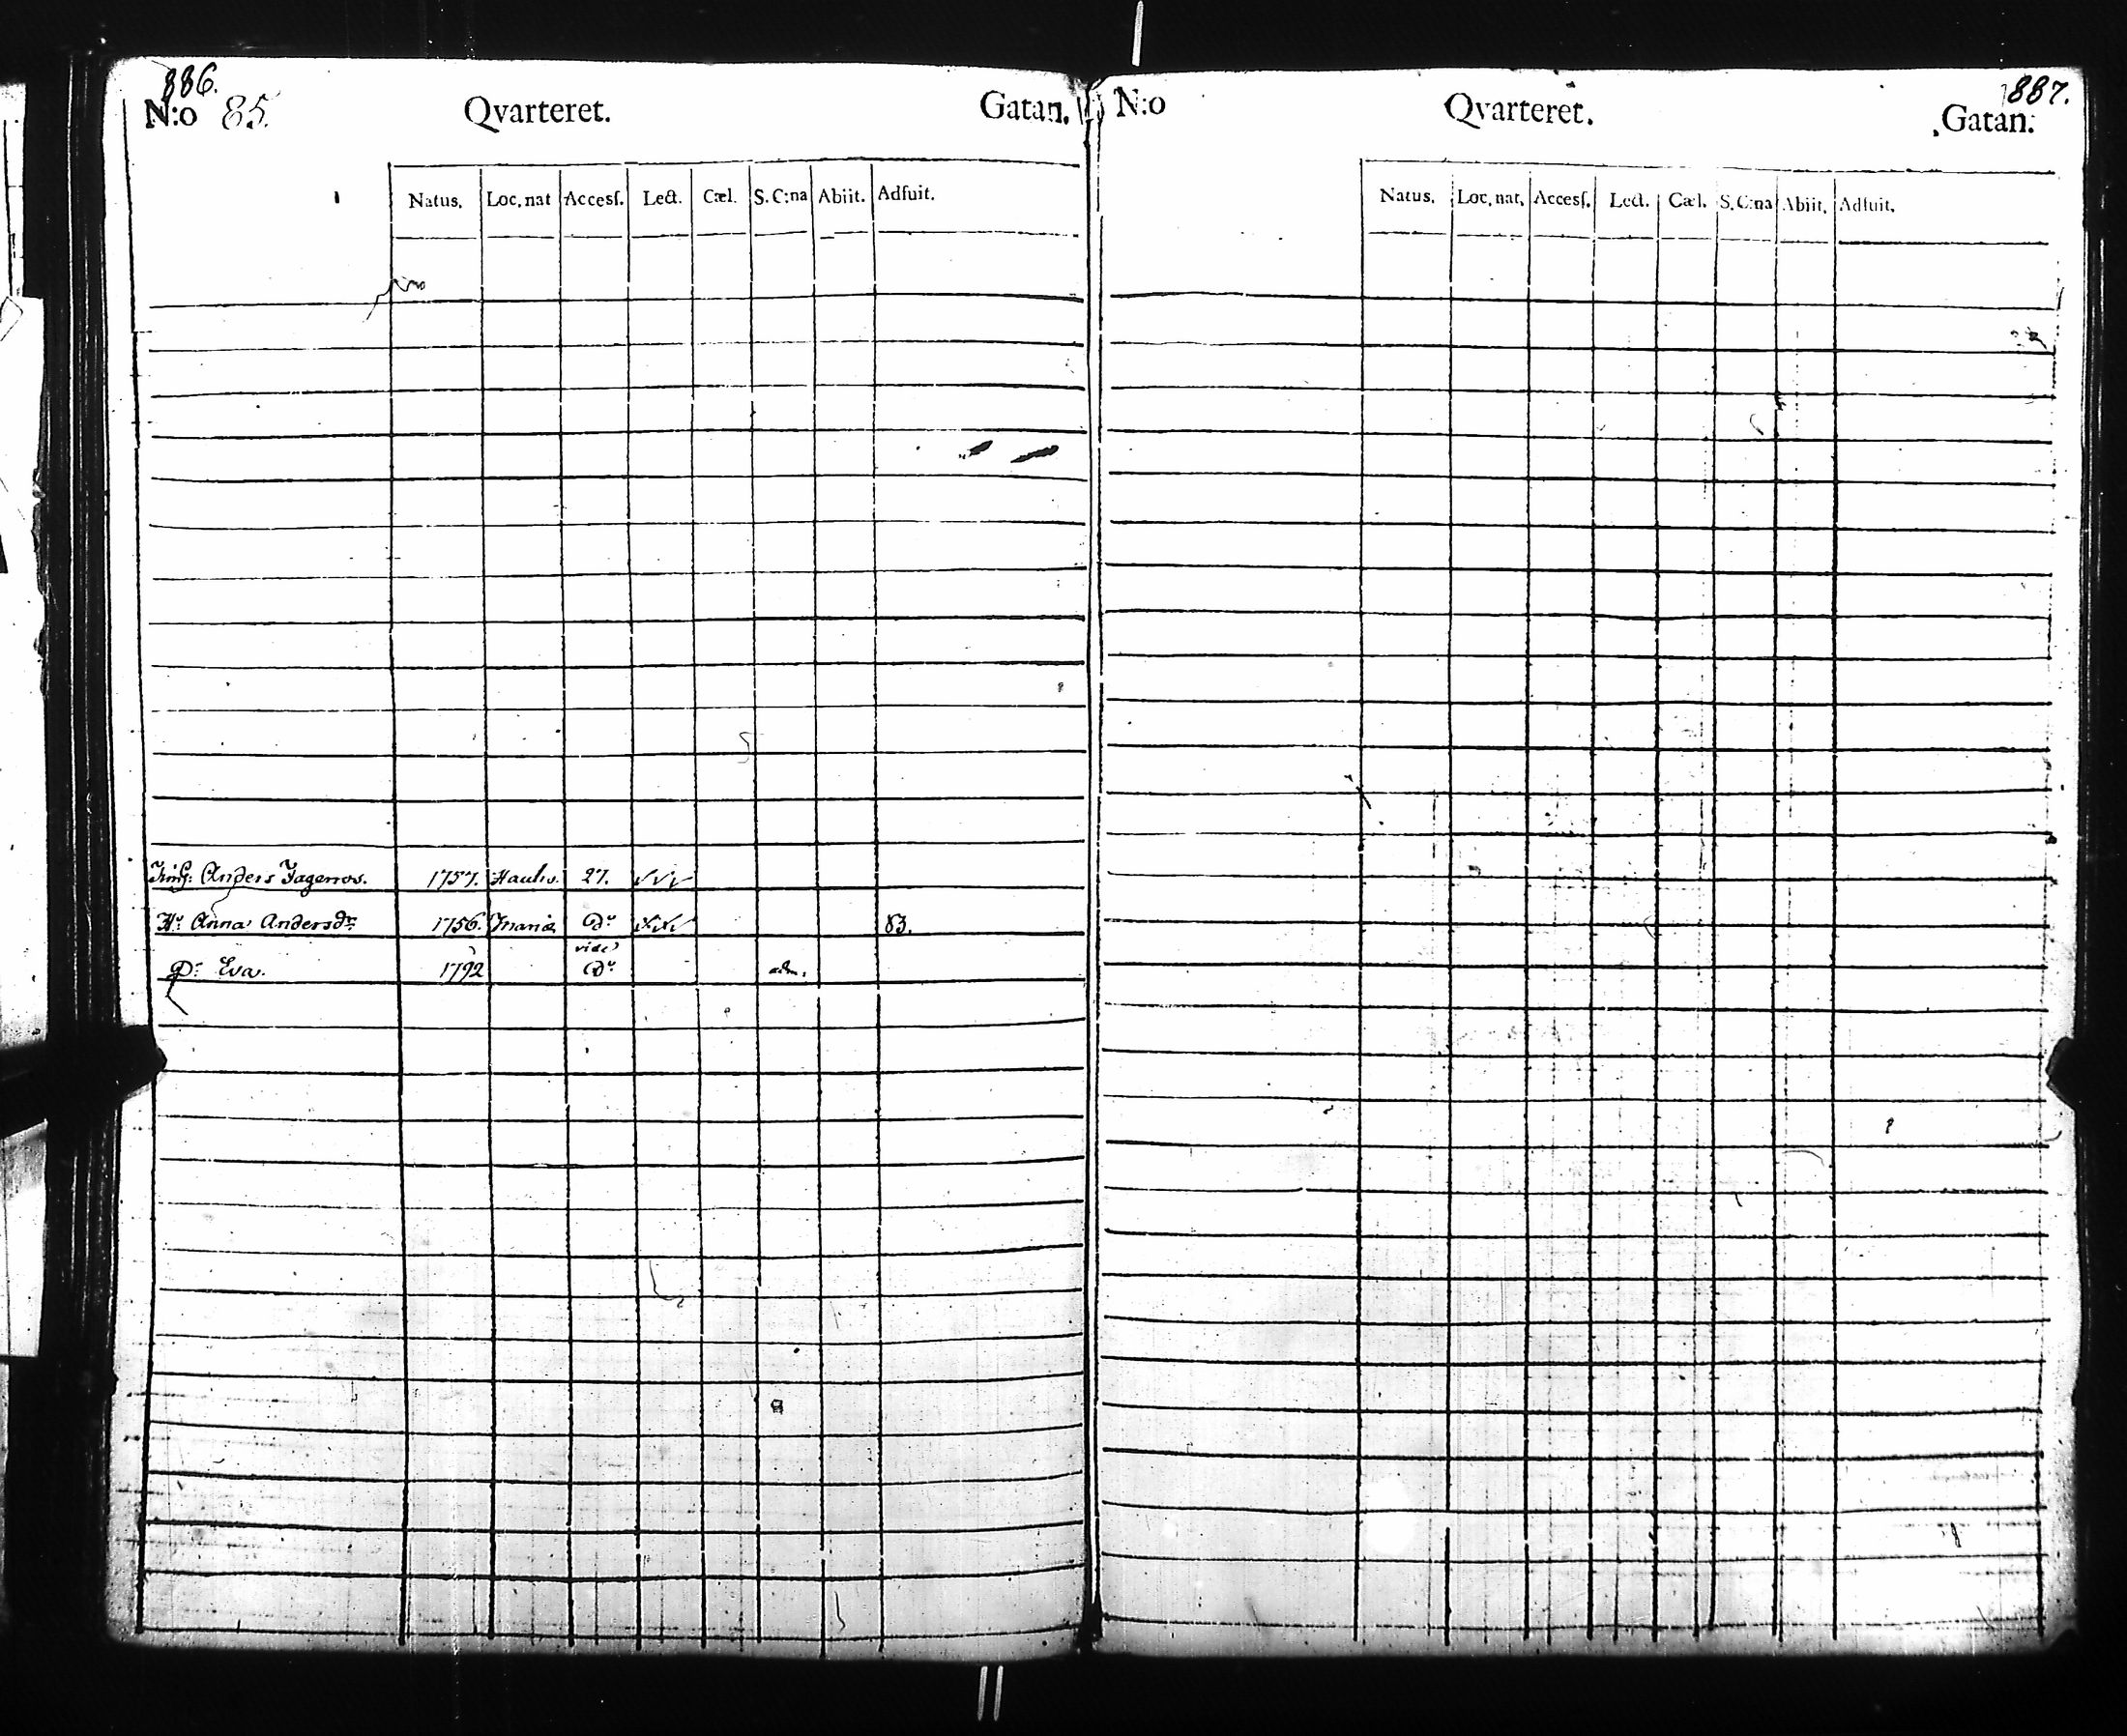 886.
N:o 85. Qvarteret. Gatan.
Natus. Loc. nat Accesſ. Lect. Cæl. S. C:na Abiit. Adfuit.
Anders 1757. 27.
H:u Anna Andersdr 1756. Mariæ D:o 83.
vide
D:r Eva. 1792 D:o adm.
887.
N:o Qvarteret. Gatan.
Natus. Loc. nat. Accesſ. Lect. Cæl. S. C:na Abiit. Adfuit.